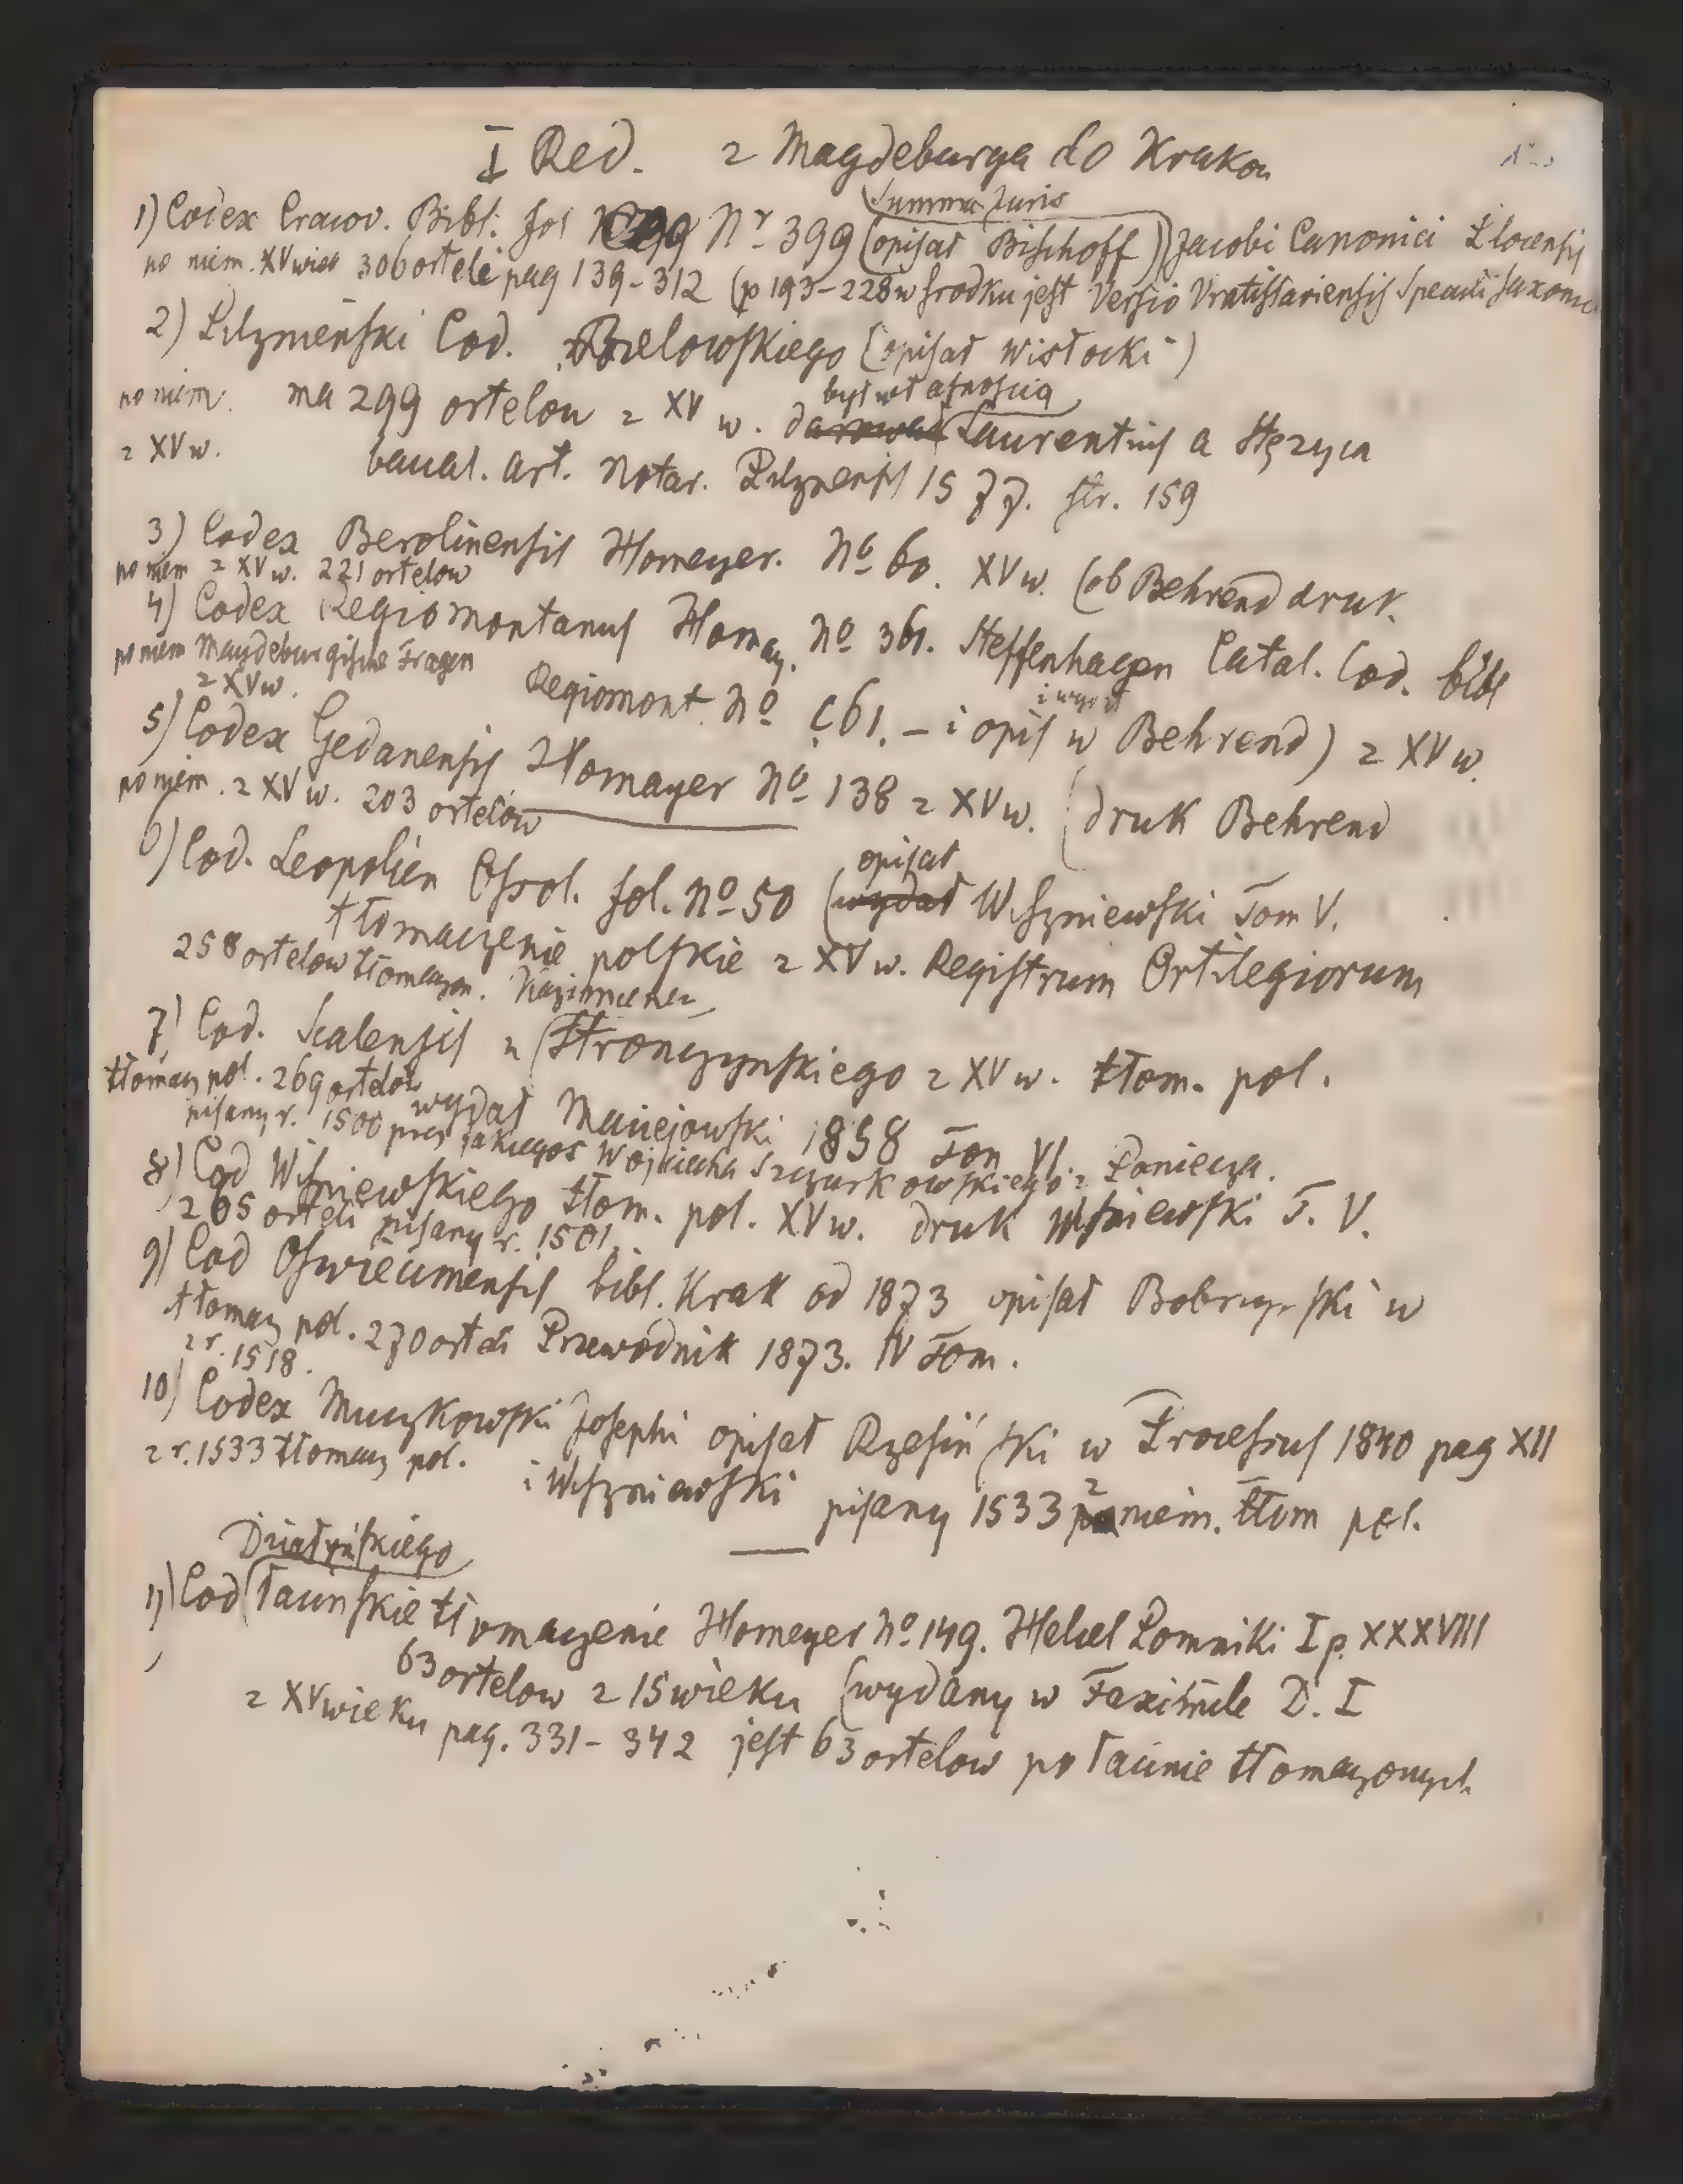 I Red. z Magdeburga do Krakow
Summa Juris
1) Codex Cracov. Bibl. fol Nr 399 (opisał Bischoff) Jacobi Canonici Plocensis
po niem. XV wiek 306 orteli pag 139-312 (p 193-228 w srodku jest Versio Vratislaviensis Speculi Saxonum
2) Pilznieński Cod. Bielowskiego (opisał Wisłocki)
po niem. ma 299 ortelow z XV w. był własnością Laurentius a Stęzyca
z XV w. bacal. art. Notar. Pilznensis 1577. str. 159
3) Codex Berolinensis Homeyer. No 60. XV w. (ob Behrend druk.
po niem z XV w. 221 ortelow
4) Codex Regiomontanus Homey. No 361. Steffenhagen Catal. Cod. bibl
po niem Magdeburgische Fragen
z XV w. Regiomont. No C61. – i opis w Behrend) z XV w.
5) Codex Gedanensis Homayer No 138 z XV w. (druk Behrend
po niem. z XV w. 203 ortelów
6) Cod. Leopolien Ossol. fol. No 50 (wydał opisał Wiszniewski Tom V.
tłomaczenie polskie z XV w. Registrum Ortilegiorum
258 ortelow tłomaczon.
7) Cod. Scalensis Stronczynskiego z XV w. tłom. pol.
tłomacz pol. 269 ortelow wydał Maciejowski 1858 Tom VI
pisany r. 1500 przez jakiegos Wojciecha Szczurkowskiego z Poniecza.
8) Cod Wiszniewskiego tłom. pol. XV w. druk Wiszniewski T. V.
265 orteli pisany r. 1501.
9) Cod Oswiecimensis bibl. Krak od 1873 opisał Bobrzynski w
tłomacz pol. 270 orteli Przewodnik 1873. IV Tom.
z r. 1518.
10) Codex Muczkowski Josephi opisał Rzesiński w Processus 1840 pag XII
z r. 1533 tłomacz pol. i Wiszniewski pisany 1533 z niem. tłom pol.
Działyńskiego
11) Cod łacinskie tłomaczenie Homeyer No 149. Helcel Pomniki I p. XXXVIII
63 ortelow z 15 wieku (wydany w Faximile D. I
z XV wieku pag. 331-342 jest 63 ortelow po łacinie tłomaczonych